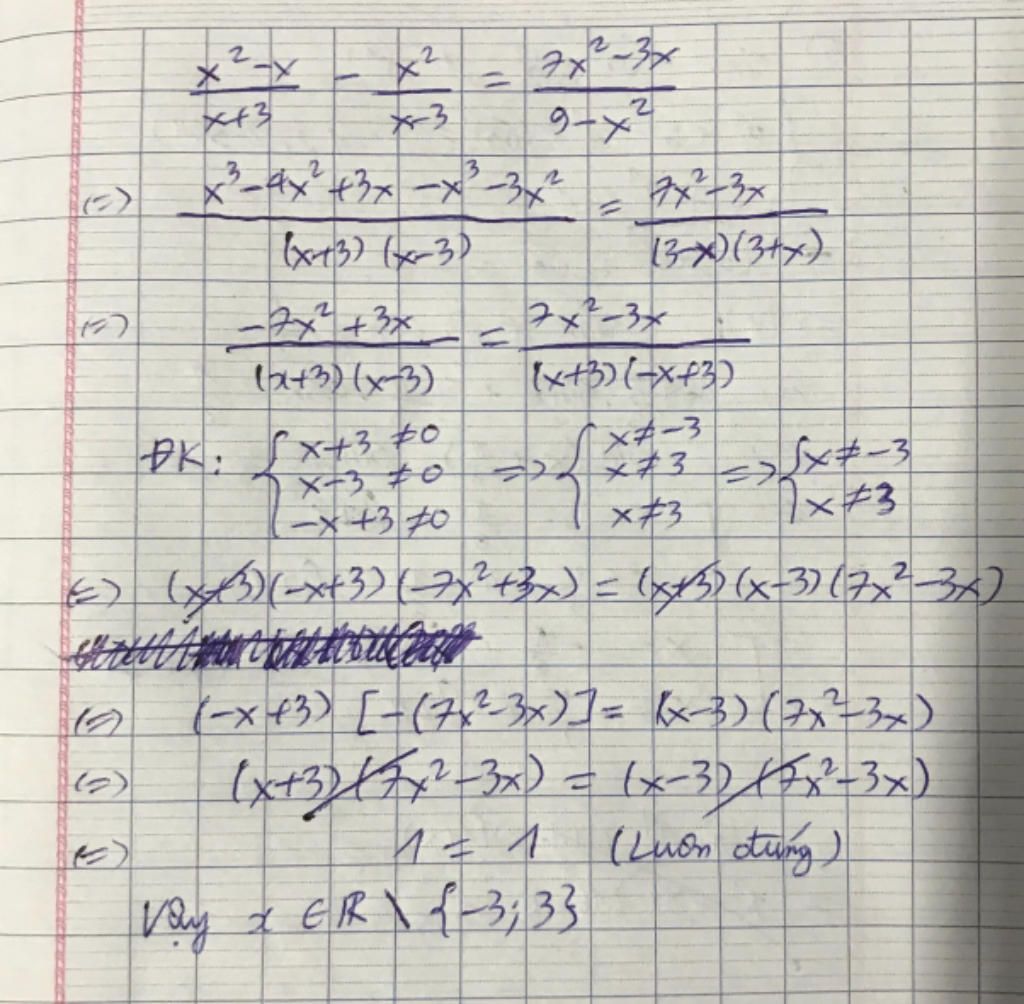 (x² - x)/(x+3) - x²/(x-3) = (7x² - 3x)/(9 - x²)
(=) (x³ - 4x² + 3x - x³ - 3x²)/((x+3)(x-3)) = (7x² - 3x)/((3-x)(3+x))
(=) (-7x² + 3x)/((x+3)(x-3)) = (7x² - 3x)/((x+3)(-x+3))
ĐK: { x+3 ≠0 ; x-3 ≠0 ; -x+3 ≠0 => { x≠-3 ; x≠3 ; x≠3 => { x≠-3 ; x≠3
(=) (x+3)(-x+3)(-7x²+3x) = (x+3)(x-3)(7x²-3x)
(=) (-x+3) [-(7x²-3x)] = (x-3)(7x²-3x)
(=) (x+3)(7x²-3x) = (x-3)(7x²-3x)
(=) 1 = 1 (Luôn đúng)
Vậy x ∈ ℝ \ {-3; 3}